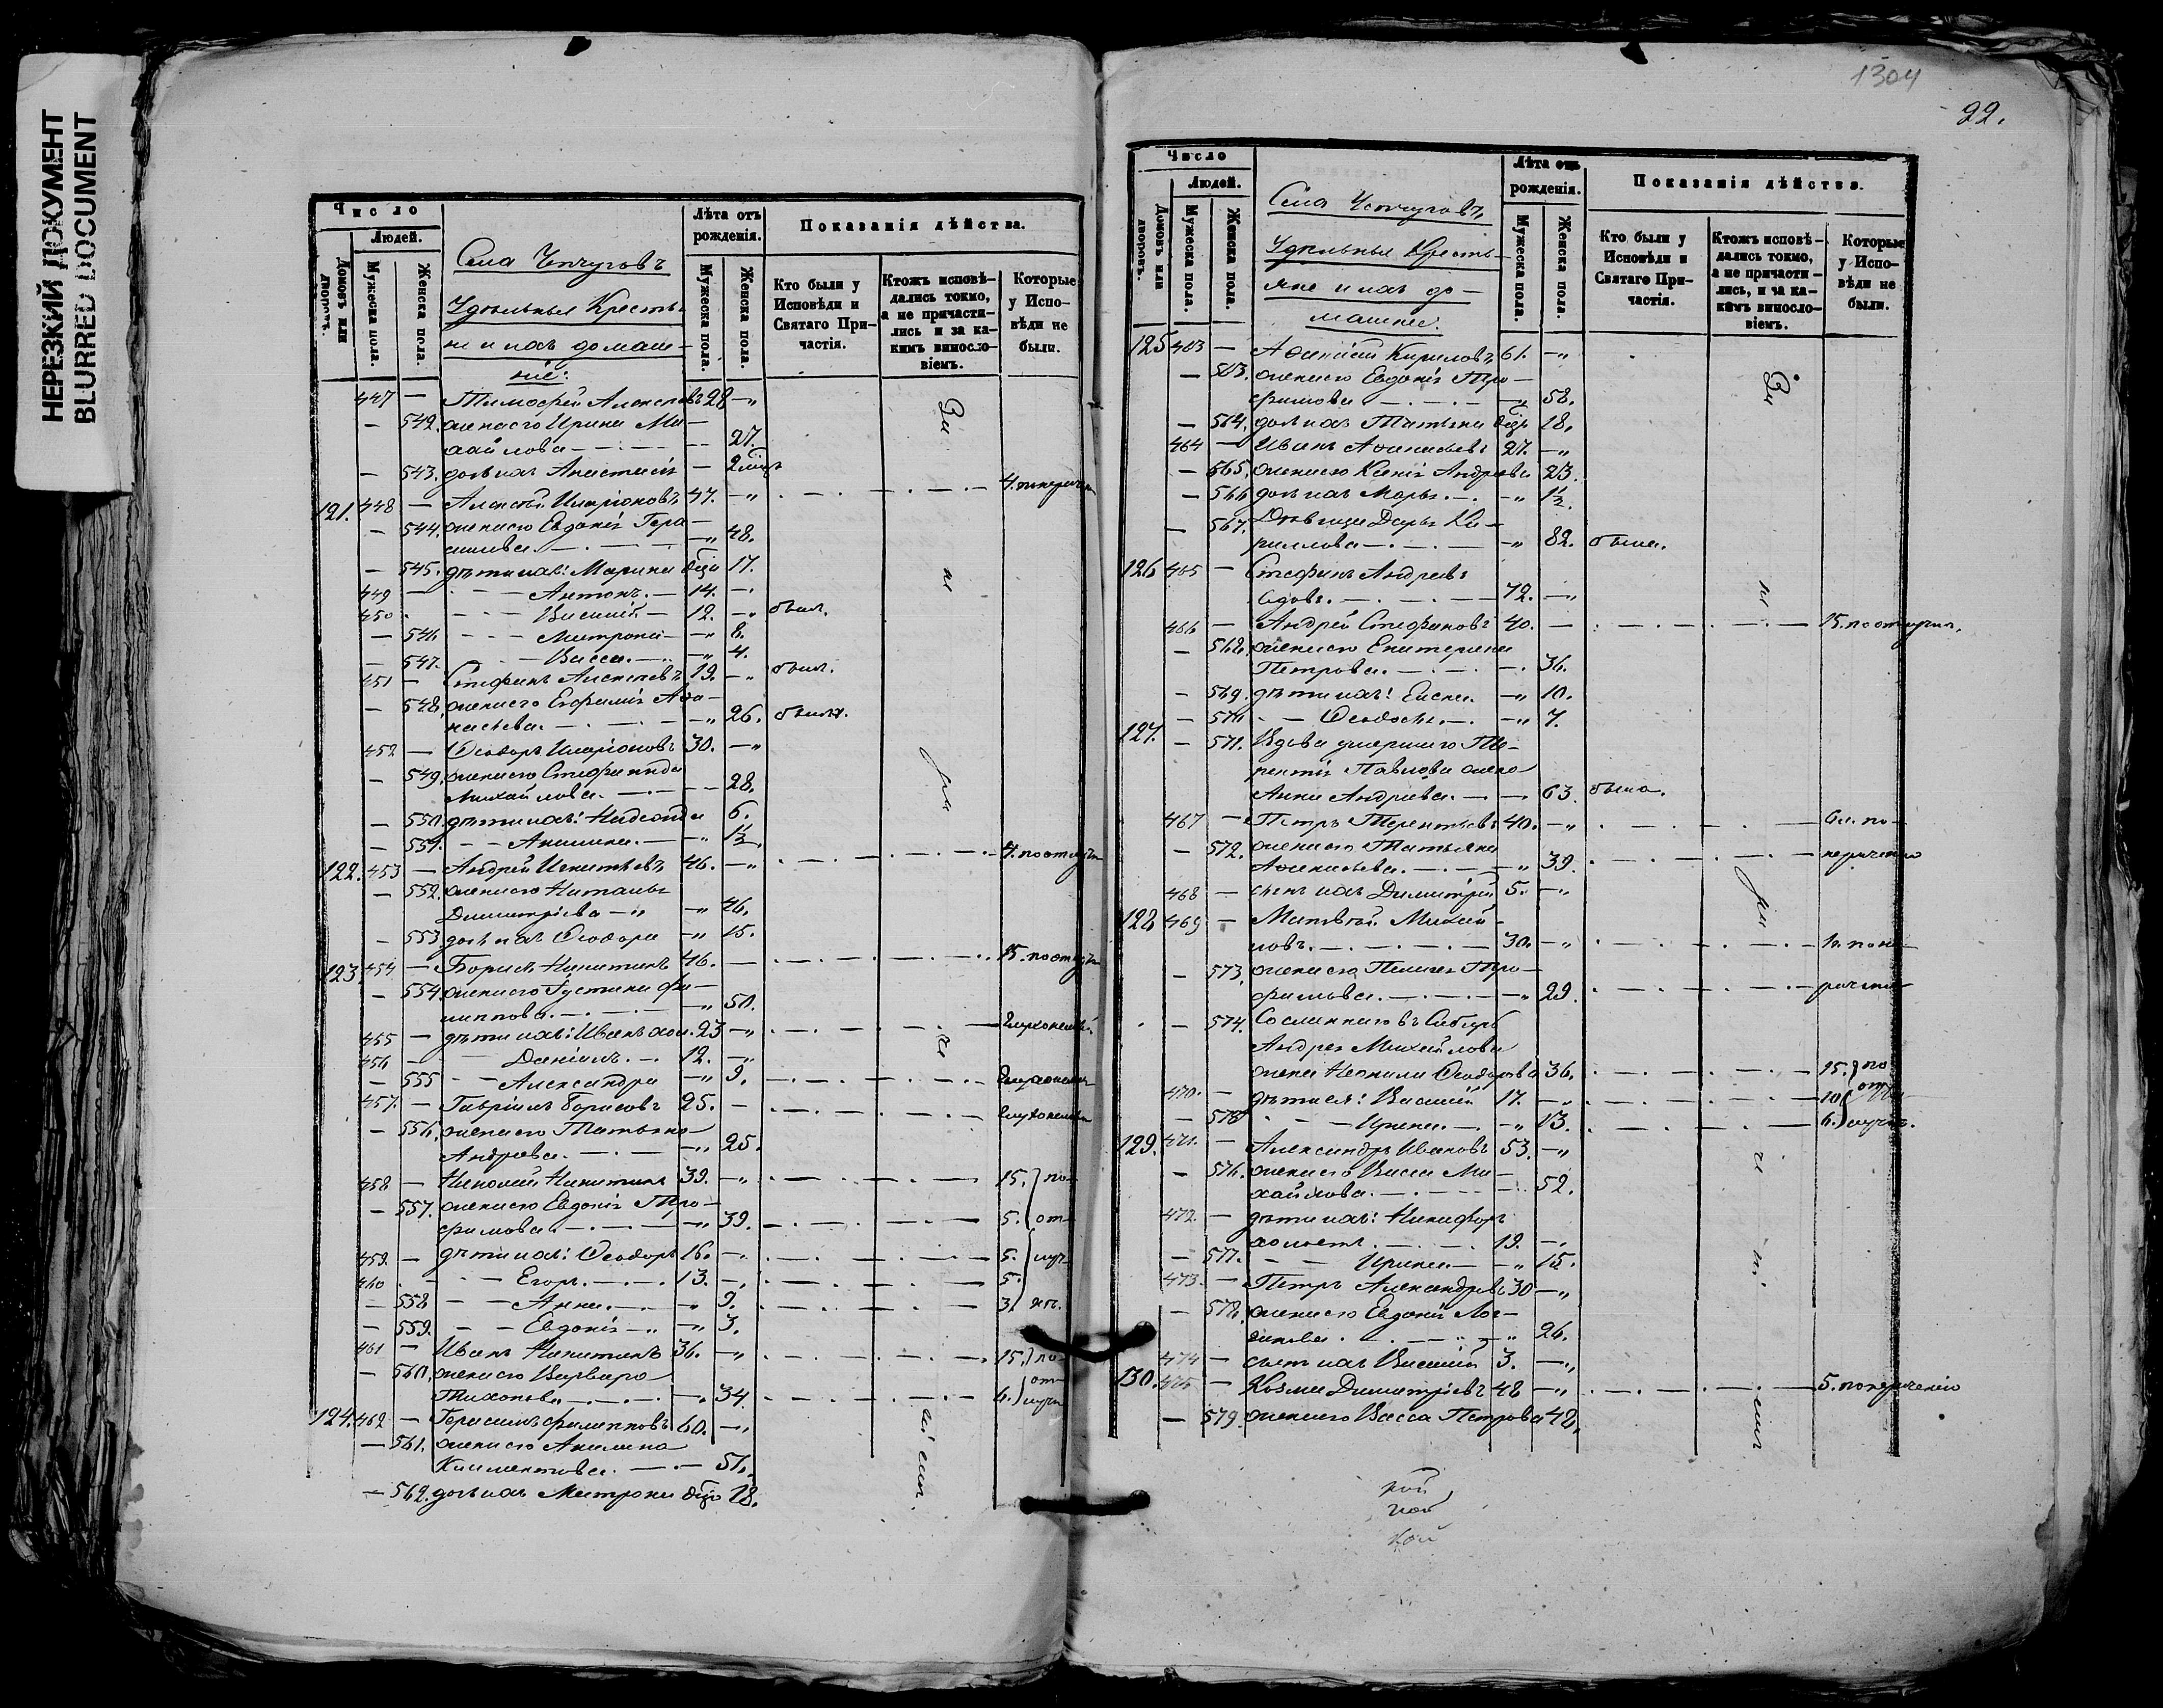 НЕРЕЗКИЙ ДОКУМЕНТ
BLURRED DOCUMENT
Число
Людей.
Домовъ или дворовъ.
Мужеска пола.
Женска пола.
Села Чепчуговъ
Удѣльныя Крестья
не и ихъ домаш-
ніе:
Лѣта отъ рожденія.
Мужеска пола.
Женска пола.
Показанія дѣйства.
Кто были у Исповѣди и Святаго При-частія.
Ктожъ исповѣ-дались токмо, а не причасти-лись и за ка-кимъ виносло-віемъ.
Которые у Испо-вѣди не были.
447 — Тимофей Алексѣевъ 28 —„
— 542. жена его Ирина Ми-
хайлова — 27.
— 543. дочь ихъ Анастасія — 2
121. 448 — Алексѣй Иларіоновъ 47. —„ 4.
— 544. жена его Евдокія Гера-
симова. — —„ 48.
— 545. дѣти ихъ: Марина дѣв 17.
449 — Антонъ. — 14. —
450 — Василій — 12. —„ былъ.
— 546 — Матрона — —„ 8.
— 547. — Васса. — —„ 4.
451 — Стефанъ Алексѣевъ 19. —„ былъ.
— 548. жена его Евфимія Аѳа-
насьева. — —„ 26. была.
452 — Ѳеодоръ Иларіоновъ 30. —„
— 549. жена его Стефанида
Михайлова. — 28.
— 550. дѣти ихъ: Надежда 6.
— 551. — Акилина. — —„ 1½
122. 453 — Андрей Никитинъ 46. —„ 4. по отлуч
— 552. жена его Наталья
Димитріева —„ —„ 46.
— 553 дочь ихъ Ѳеодора —„ 15.
123 454 — Борисъ Никитинъ 46. — 15. по отлуч
— 554 жена его Густина Фи-
липпова. — —„ 50.
455 — дѣти ихъ: Иванъ хол. 23 —„ глухонѣмой
456 — Даніилъ. — 12. —„
— 555 — Александра —„ 9. глухонѣмая
457. — Гавріилъ Борисовъ 25. — глухонѣмой
— 556. жена его Татьяна
Андреева. — —„ 25.
458 — Николай Никитинъ 39. —„ 15. по
— 557. жена его Евдокія Тро-
фимова. — —„ 39. 5. от
459. — дѣти ихъ: Ѳеодоръ 16. —„ 5. луч
460 — Егоръ. — 13. —„ 5.
— 558 — Анна. — „ 9. 3. кѣ.
— 559. — Евдокія —„ —„ 3.
461 — Иванъ Никитинъ 36. —„ 15. по
— 560. жена его Варвара от
Тихонова. — —„ 34. 6. лучкѣ
124. 462 — Герасимъ Филипповъ 60. —„
— 561. жена его Акилина
Климентова. — 57.
— 562. дочь ихъ Матрона дѣв 18.
1304
22.
Число
Людей.
Домовъ или дворовъ.
Мужеска пола.
Женска пола.
Села Чепчуговъ
Удѣльныя Кресть-
яне и ихъ до-
машніе.
Лѣта отъ рожденія.
Мужеска пола.
Женска пола.
Показанія дѣйства.
Кто были у Исповѣди и Святаго При-частія.
Ктожъ исповѣ-дались токмо, а не причасти-лись, и за ка-кимъ виносло-віемъ.
Которые у Испо-вѣди не были.
125 463 — Аѳанасій Кириловъ 61. —„
— 563. жена его Евдокія Тро-
фимова. — —„ 58.
— 564. дочь ихъ Татьяна дѣв 18.
464 — Иванъ Аѳанасьевъ 27. —„
— 565. жена его Ксенія Андреева 23.
— 566 дочь ихъ Марья. — —„ 1½.
— 567. Дѣвица Дарья Ки-
риллова — —„ 82. была.
126 465 — Стефанъ Андреевъ
вдовъ. — 72. —„
466 — Андрей Стефановъ 40. — 15. по отлучкѣ.
— 568. жена его Екатерина
Петрова. — —. 36.
— 569. дѣти ихъ: Елена. —„ 10.
— 570 — Ѳеодосія. — —„ 7.
127. — 571. Вдова умершаго Те-
рентія Павлова жена
Анна Андреева. — — 63. была.
467 — Петръ Терентьевъ 40. —„ 6л. по не
— 572. жена его Татьяна
Аѳанасьева. — —„ 39. раченію
468 — сынъ ихъ Димитрій 5. —„
128 469 — Матвѣй Михай-
ловъ. — 30. —„ 1г. по не
— 573. жена его Пелагея Тро-
фимова. — —„ 29. раченію
— 574. Сосланнаго въ Сибирь
Андрея Михайлова
жена Неонила Ѳеодорова 36. 15. по
470. — дѣти ея: Василій 17. —„ 10 от
— 575 — Ирина. — —„ 13. 6. лучкѣ.
129. 471. — Александръ Ивановъ 53. —„
— 576. жена его Васса Ми-
хайлова. — 52.
472. — дѣти ихъ: Никифоръ
холостъ. — 19. —
— 577. — Ирина — —„ 15.
473. — Петръ Александровъ 30 —„
— 578. жена его Евдокія Лог-
гинова. — „ 26.
474 — сынъ ихъ Василій 3. —„
130. 475 — Козма Димитріевъ 48 —„ 5. по нераченію
— 579. жена его Васса Петрова 42.